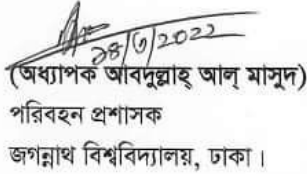 (অধ্যাপক আবদুল্লাহ্ আল্ মাসুদ)
পরিবহন প্রশাসক
জগন্নাথ বিশ্ববিদ্যালয়, ঢাকা।